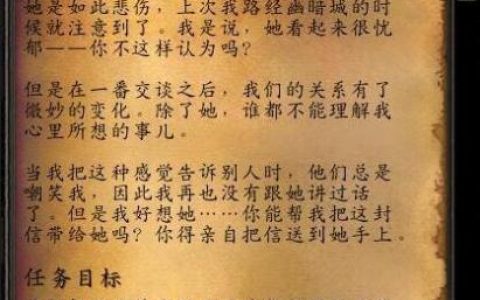 她是如此悲伤，上次我路经幽暗城的时
候就注意到了。我是说，她看起来很忧
郁——你不这样认为吗？
但是在一番交谈之后，我们的关系有了
微妙的变化。除了她，谁都不能理解我
心里所想的事儿。
当我把这种感觉告诉别人时，他们总是
嘲笑我，因此我再也没有跟她讲过话
了。但是我好想她……你能帮我把这封
信带给她吗？你得亲自把信送到她手上。
任务目标